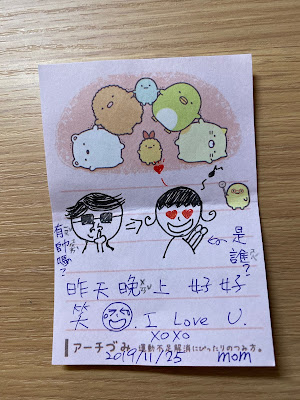 有帥嗎?
是誰?
昨天晚上 好好
笑 . I Love U.
xoxo
アーチづみ 運動不足解消にぴったりのつみ方。
2019/11/25 mom